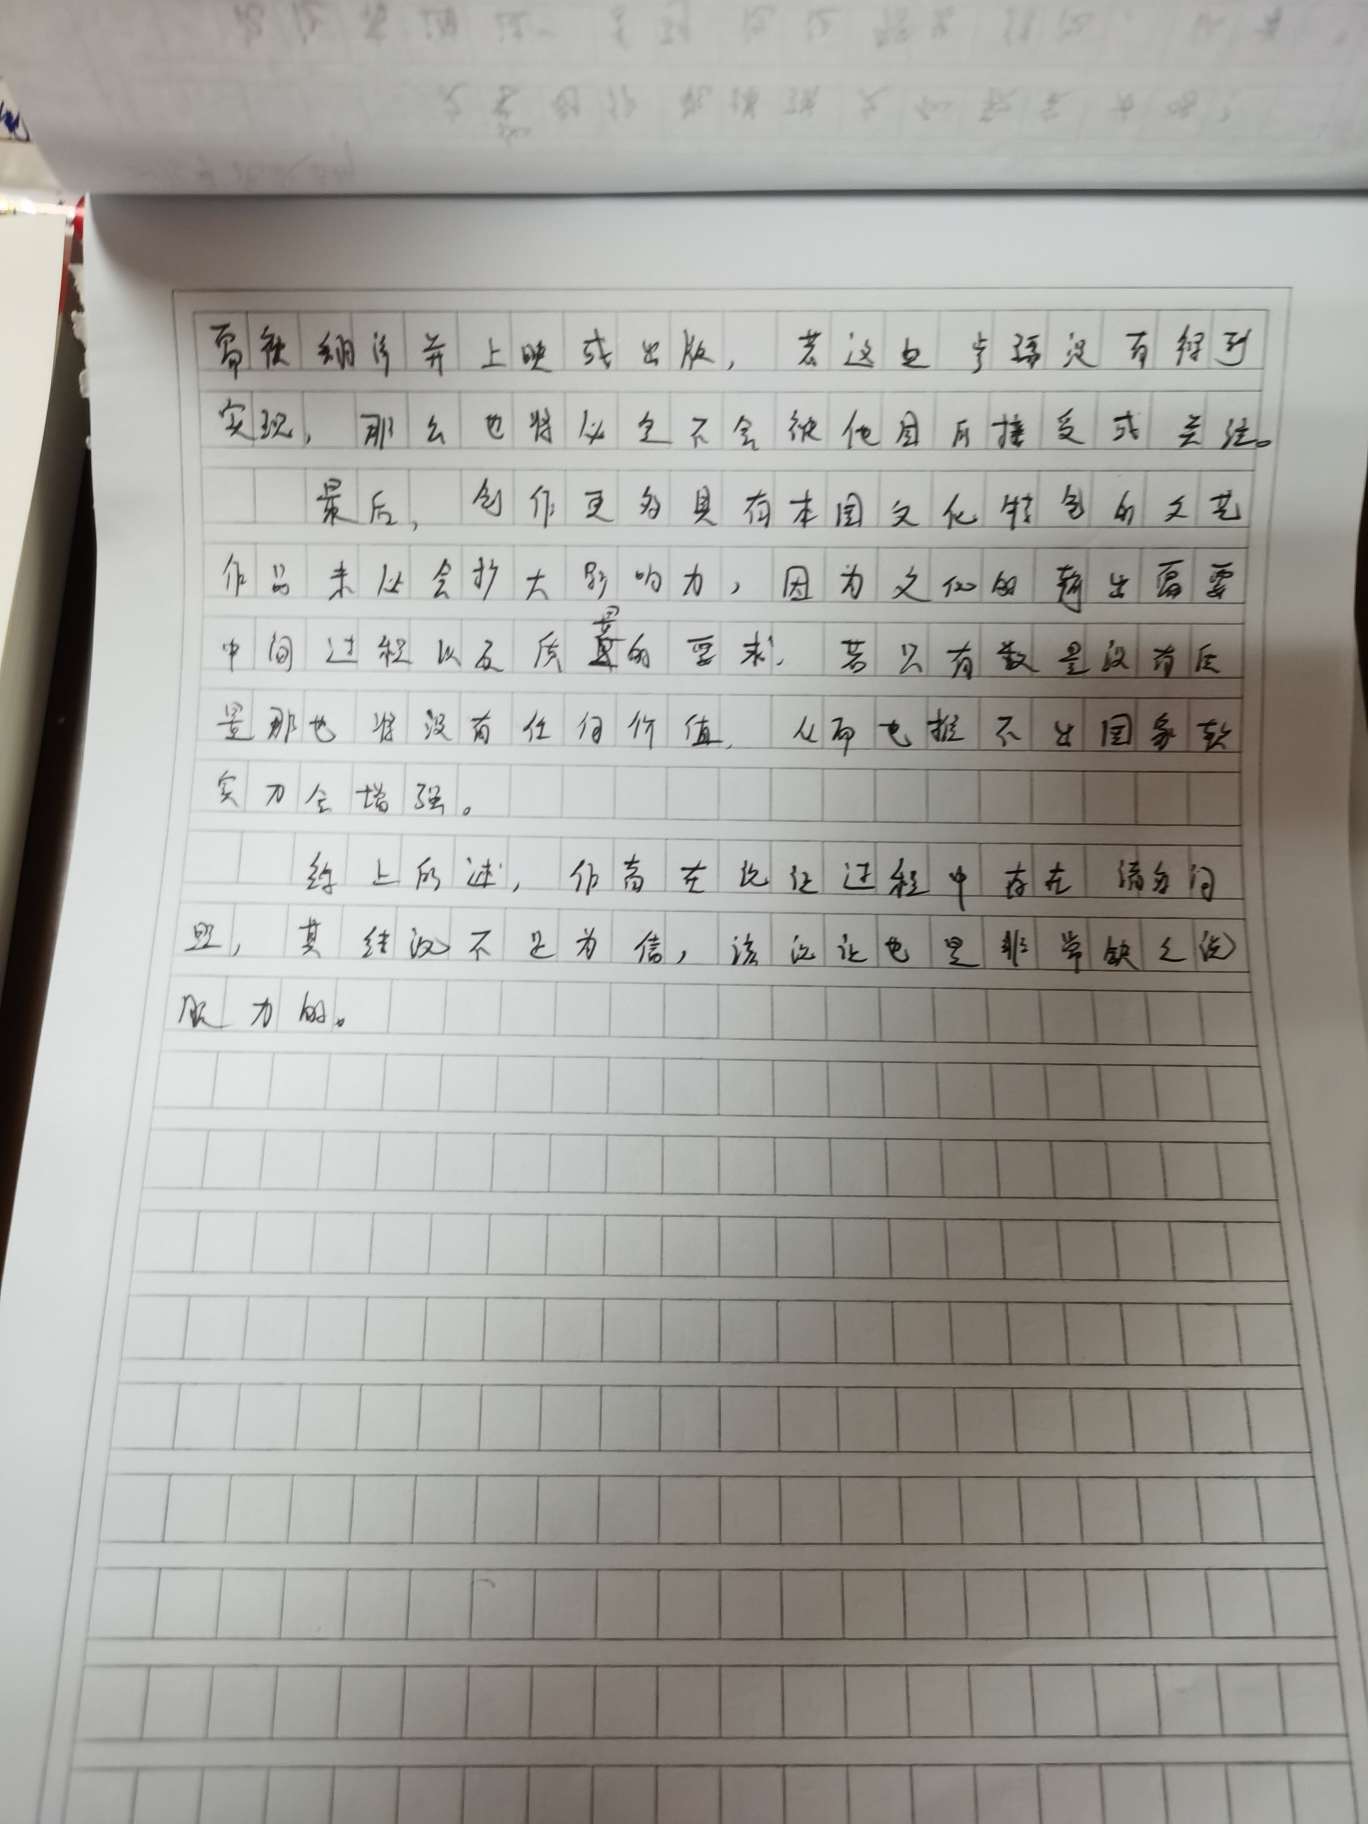 需被翻译并上映或出版，若这些步骤没有得到
实现，那么也将必定不会被他国所接受或关注。
最后，创作更多具有本国文化特色的文艺
作品未必会扩大影响力，因为文化的输出需要
中间过程以及质量的要求，若只有数量没有质
量那也将没有任何价值，从而也推不出国家软
实力会增强。
综上所述，作者在论证过程中存在诸多问
题，其结论不足为信，该论证也是非常缺乏说
服力的。